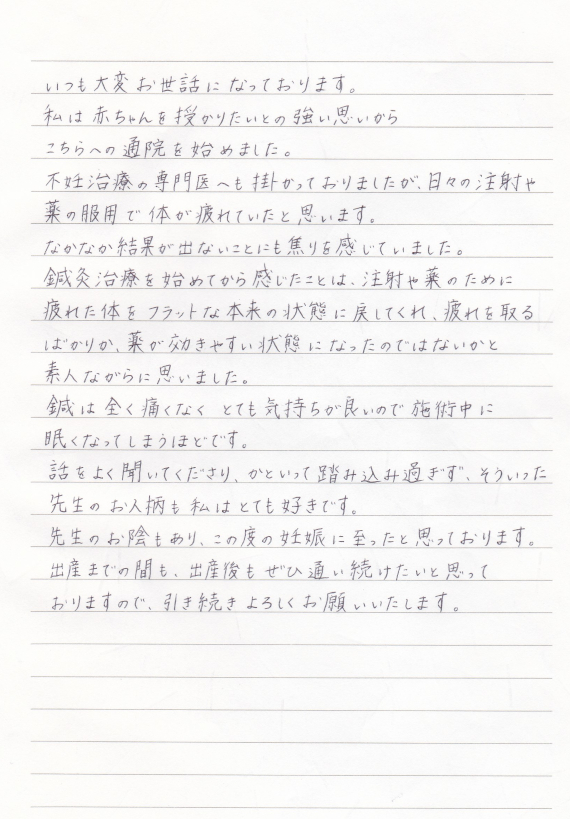 いつも大変お世話になっております。
私は赤ちゃんを授かりたいとの強い思いから
こちらへの通院を始めました。
不妊治療の専門医へも掛かっておりましたが、日々の注射や
薬の服用で体が疲れていたと思います。
なかなか結果が出ないことにも焦りを感じていました。
鍼灸治療を始めてから感じたことは、注射や薬のために
疲れた体をフラットな本来の状態に戻してくれ、疲れを取る
ばかりか、薬が効きやすい状態になったのではないかと
素人ながらに思いました。
鍼は全く痛くなくとても気持ちが良いので施術中に
眠くなってしまうほどです。
話をよく聞いてくださり、かといって踏み込み過ぎず、そういった
先生のお人柄も私はとても好きです。
先生のお陰もあり、この度の妊娠に至ったと思っております。
出産までの間も、出産後もぜひ通い続けたいと思って
おりますので、引き続きよろしくお願いいたします。